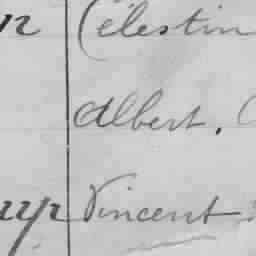 Célestin
Albert.
Vincent